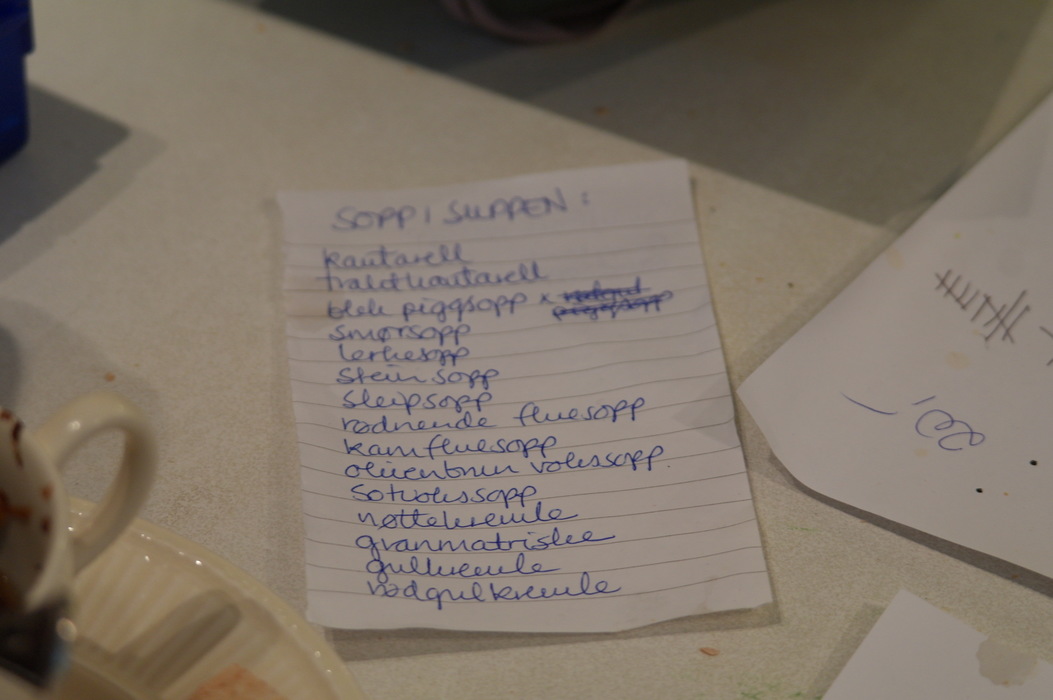 SOPP I SUPPEN :
kantarell
traktkantarell
blek piggsopp x
smørsopp
lerkesopp
steinsopp
sleipsopp
rødnende fluesopp
kamfluesopp
olivenbrun vokssopp.
Sotvokssopp
nøttekremle
granmatriske
gulkremle
rødgulkremle